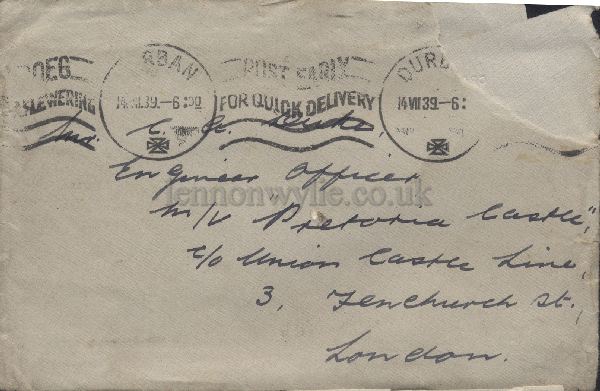 OEG
RBAN
POST EARLY
DURB
AFLEWERING
14 VII 39 - 6:00
FOR QUICK DELIVERY
14 VII 39 - 6:
C.
Engineer Officer
lennonwylie.co.uk
M/V "Pretoria Castle",
c/o Union Castle Line,
3, Fenchurch St.,
London.